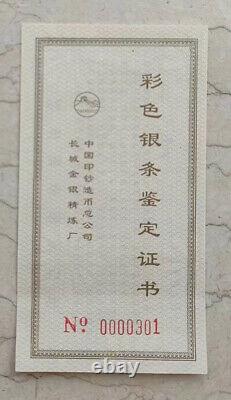 彩色银条鉴定证书
中国印钞造币总公司
长城金银精炼厂
Nº 0000301